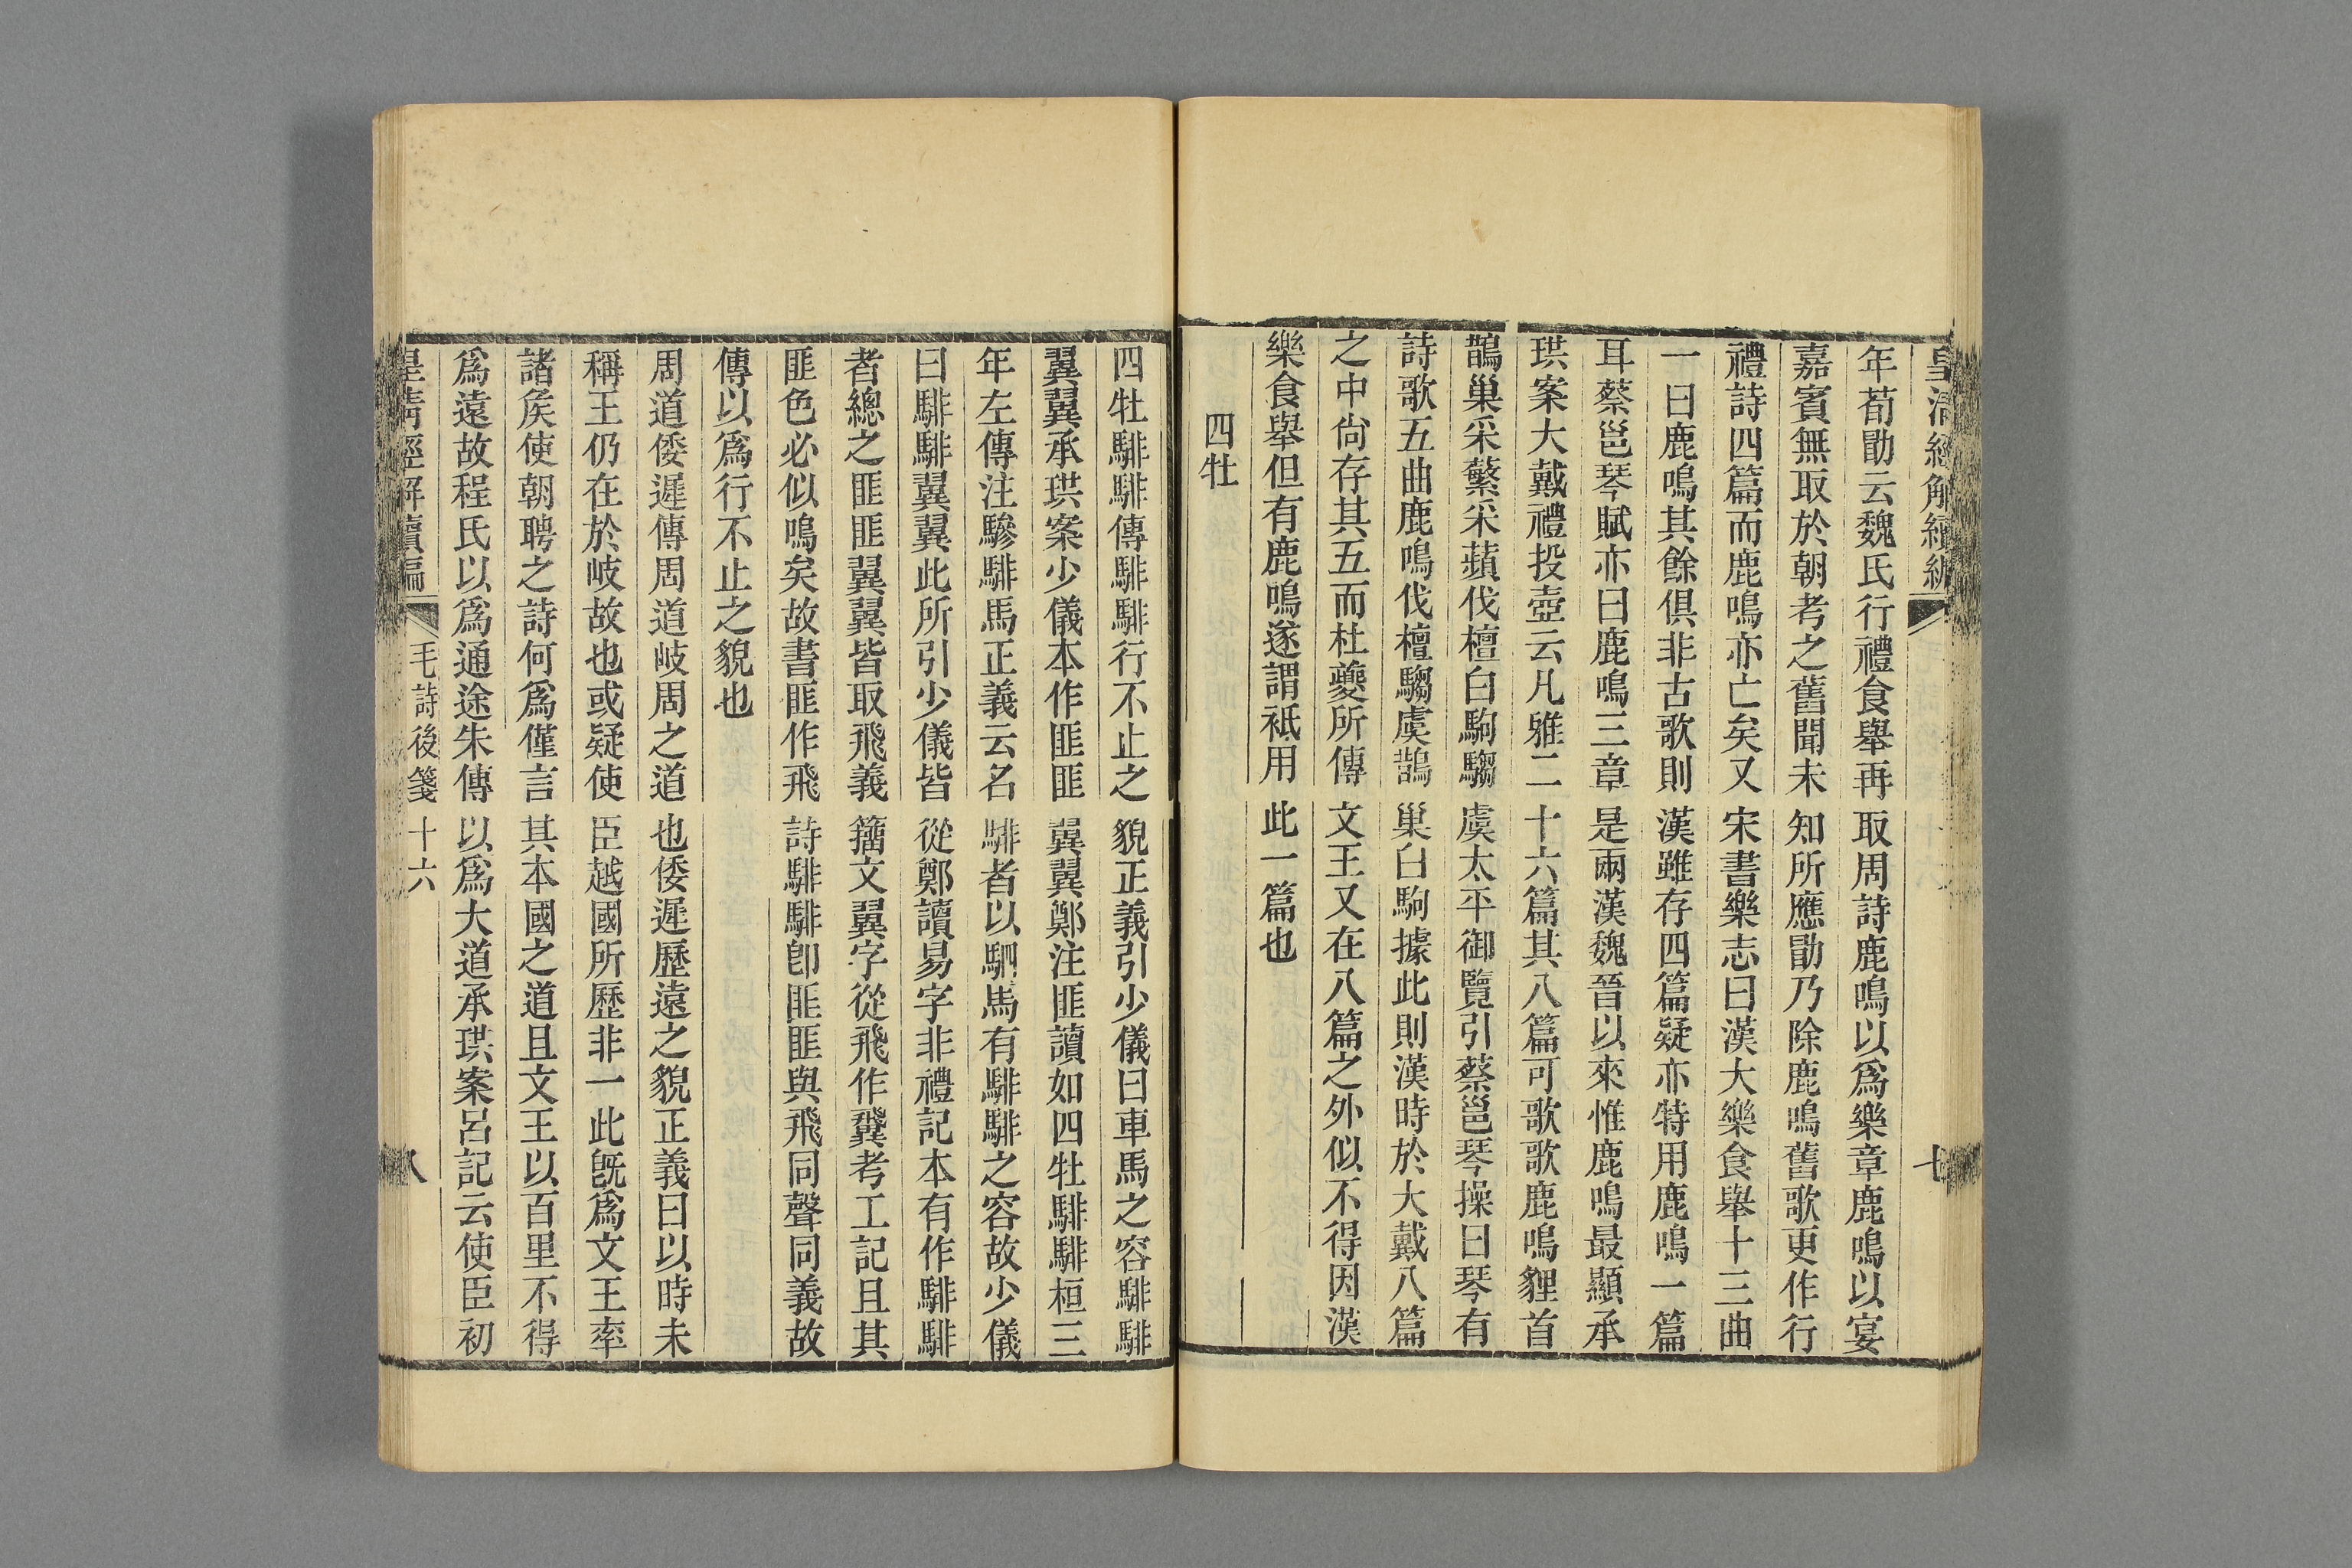 皇清經解續編
七
年荀勖云魏氏行禮食舉再取周詩鹿鳴以爲樂章鹿鳴以宴
嘉賓無取於朝考之舊聞未知所應勖乃除鹿鳴舊歌更作行
禮詩四篇而鹿鳴亦亡矣又宋書樂志曰漢大樂食舉十三曲
一曰鹿鳴其餘俱非古歌則漢雖存四篇疑亦特用鹿鳴一篇
耳蔡邕琴賦亦曰鹿鳴三章是兩漢魏晉以來惟鹿鳴最顯承
珙案大戴禮投壺云凡雅二十六篇其八篇可歌歌鹿鳴貍首
鵲巢采蘩采蘋伐檀白駒騶虞太平御覽引蔡邕琴操曰琴有
詩歌五曲鹿鳴伐檀騶虞鵲巢白駒據此則漢時於大戴八篇
之中尙存其五而杜夔所傳文王又在八篇之外似不得因漢
樂食舉但有鹿鳴遂謂祇用此一篇也
四牡
四牡騑騑傳騑騑行不止之貌正義引少儀曰車馬之容騑騑
翼翼承珙案少儀本作匪匪翼翼鄭注匪讀如四牡騑騑桓三
年左傳注驂騑馬正義云名騑者以駟馬有騑騑之容故少儀
曰騑騑翼翼此所引少儀皆從鄭讀易字非禮記本有作騑騑
者總之匪匪翼翼皆取飛義籀文翼字從飛作䎀考工記且其
匪色必似鳴矣故書匪作飛詩騑騑卽匪匪與飛同聲同義故
傳以爲行不止之貌也
周道倭遲傳周道岐周之道也倭遲歷遠之貌正義曰以時未
稱王仍在於岐故也或疑使臣越國所歷非一此旣爲文王率
諸矦使朝聘之詩何爲僅言其本國之道且文王以百里不得
爲遠故程氏以爲通途朱傳以爲大道承珙案呂記云使臣初
皇清經解續編
毛詩後箋十六
八